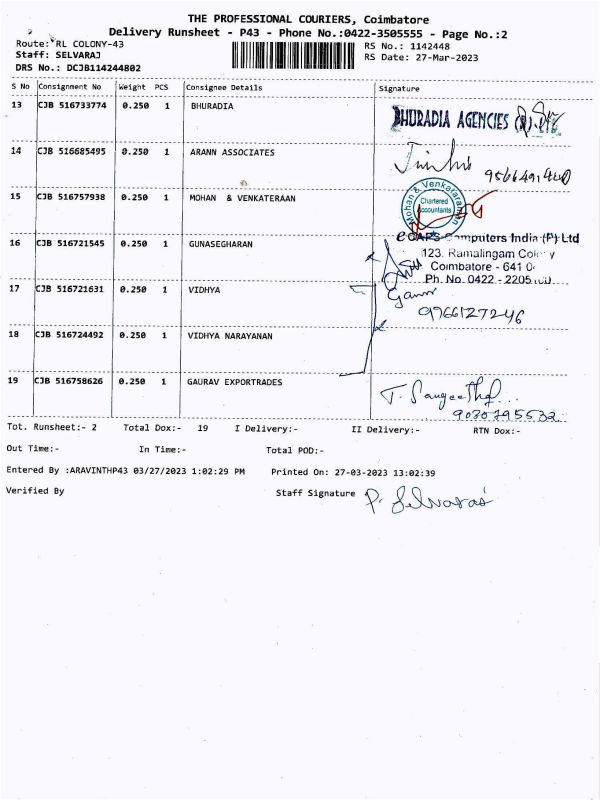 THE PROFESSIONAL COURIERS, Coimbatore
Delivery Runsheet - P43 - Phone No.:0422-3505555 - Page No.:2
Route: RL COLONY-43
RS No.: 1142448
Staff: SELVARAJ
RS Date: 27-Mar-2023
DRS No.: DCJB114244802
S No Consignment No Weight PCS Consignee Details Signature
13 CJB 516733774 0.250 1 BHURADIA
BHURADIA AGENCIES (P)
14 CJB 516685495 0.250 1 ARANN ASSOCIATES
15 CJB 516757938 0.250 1 MOHAN & VENKATERAAN
Mohan & Venkataraman
Chartered
Accountants
16 CJB 516721545 0.250 1 GUNASEGHARAN
eCAPS Computers India (P) Ltd
123, Ramalingam
Coimbatore - 641
Ph. No. 0422 - 2205
17 CJB 516721631 0.250 1 VIDHYA
9966127246
18 CJB 516724492 0.250 1 VIDHYA NARAYANAN
19 CJB 516758626 0.250 1 GAURAV EXPORTRADES
T. Sangeetha
9030795532
Tot. Runsheet:- 2 Total Dox:- 19 I Delivery:- II Delivery:- RTN Dox:-
Out Time:- In Time:- Total POD:-
Entered By :ARAVINTHP43 03/27/2023 1:02:29 PM Printed On: 27-03-2023 13:02:39
Verified By Staff Signature P. Selvaraj